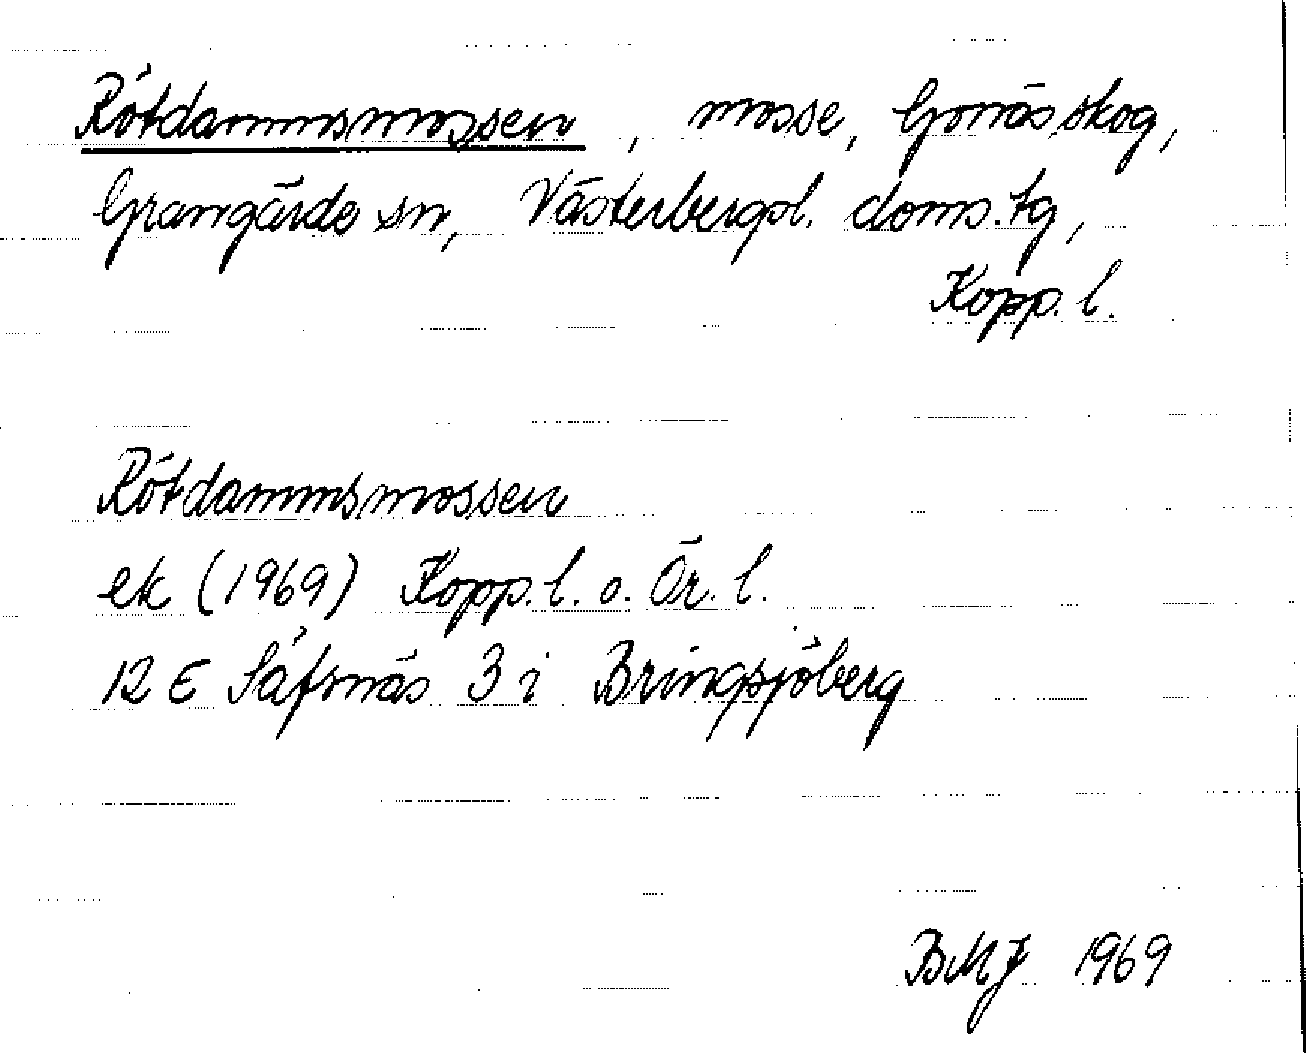 Rötdammsmossen, mosse, Gonäs skog,
Grangärde sn, Västerbergsl. doms.tg,
Kopp. l.
Rötdammsmossen
ek (1969) Kopp. l. o. Ör. l.
12 E Säfsnäs 3 i Bringsjöberg
BMJ 1969